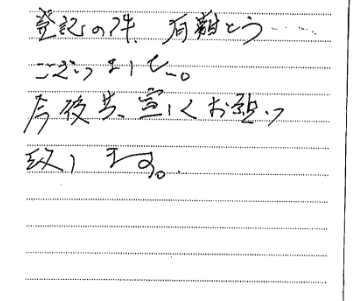 登記の件、有難とう‥‥
ございました。
今後共、宜しくお願い
致します。